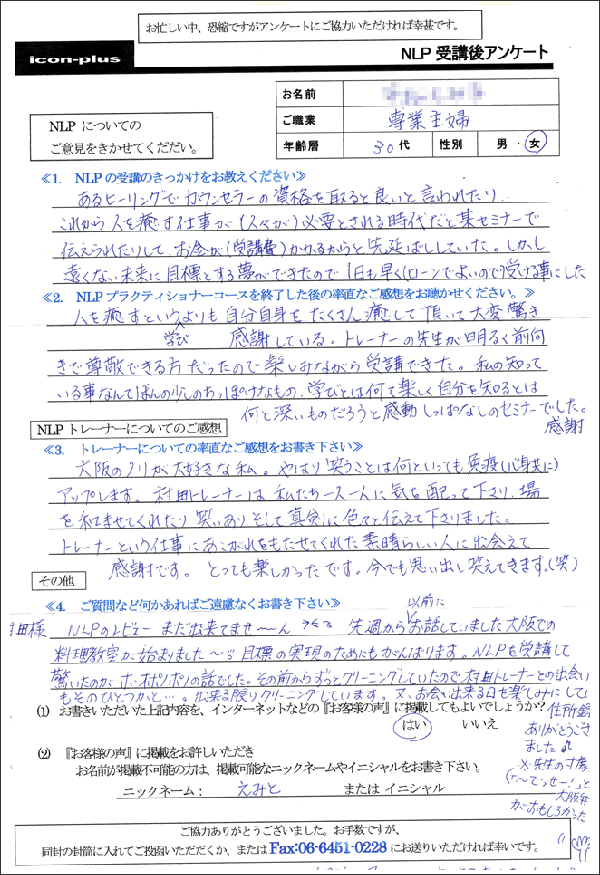 お忙しい中、恐縮ですがアンケートにご協力いただければ幸甚です。
icon-plus
NLP 受講後アンケート
お名前
NLP についての
ご意見をきかせてくだだい。
ご職業 専業主婦
年齢層 30代 性別 男・女
≪1. NLPの受講のきっかけをお教えください≫
あるヒーリングでカウンセラーの資格を取ると良いと言われたり
これから人を癒す仕事が(人々が)必要とされる時代だと某セミナーで
伝えられたりして、お金が(受講費)かかるからと先延ばししていた。しかし
遠くない未来に目標とする夢ができたので1日も早く(ローンでよいので)受ける事にした
≪2. NLPプラクティショナーコースを終了した後の率直なご感想をお聴かせください。≫
人を癒すというよりも自分自身をたくさん癒して頂いて大変驚き
学び 感謝している。トレーナーの先生が明るく前向
きで尊敬できる方だったので楽しみながら受講できた。私の知って
いる事なんてほんの少しのちっぽけなもの、学びとは何て楽しく自分を知るとは
何と深いものだろうと感動しっぱなしのセミナーでした。
感謝
NLPトレーナーについてのご感想
≪3. トレーナーについての率直なご感想をお書き下さい≫
大阪のノリが大好きな私。やはり笑うことは何といっても免疫(心身共に)
アップします。村田トレーナーは私たち一人一人に気を配って下さり、場
を和ませてくれたり笑いありそして真剣に色々と伝えて下さりました。
トレーナーという仕事にあこがれをもたせてくれた素晴らしい人に出会えて
感謝です。とっても楽しかったです。今でも思い出し笑えてきます。(笑)
その他
≪4. ご質問など何かあればご遠慮なくお書き下さい≫
以前に
田様 NLPのレビューまだ出来てませ〜ん 先週からお話していました大阪での
料理教室が始まりました〜 目標の実現のためにもがんばります。NLPを受講して
驚いたのがホ・オポノポノの話でした。その前からずっとクリーニングしていたので村田トレーナーとの出会い
もそのひとつかと…。出来る限りクリーニングしています。又、お会い出来る日を楽しみにして
(1) お書きいただいた上記内容を、インターネットなどの『お客様の声』に掲載してもよいでしょうか?
はい いいえ
住所録
ありがとうござ
ました
(2) 『お客様の声』に掲載をお許しいただき
お名前が掲載不可能の方は、掲載可能なニックネームやイニシャルをお書き下さい。
ニックネーム: えみと または イニシャル
がおもしろかった
ご協力ありがとうございました。お手数ですが、
同封の封筒に入れてご投函いただだくか、またはFax:06-6451-0228 にお送りいただければ幸いです。